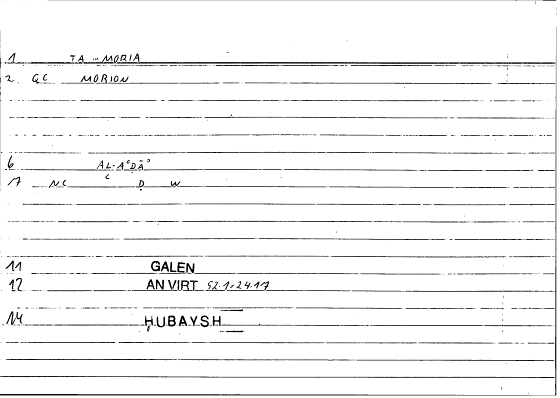 1 TA MORIA
2. GC MORION
6 AL-AʿḌĀʾ
7 NC ʿ Ḍ W
11 GALEN
12 AN VIRT 52.1-24.17
14 ḤUBAYSH